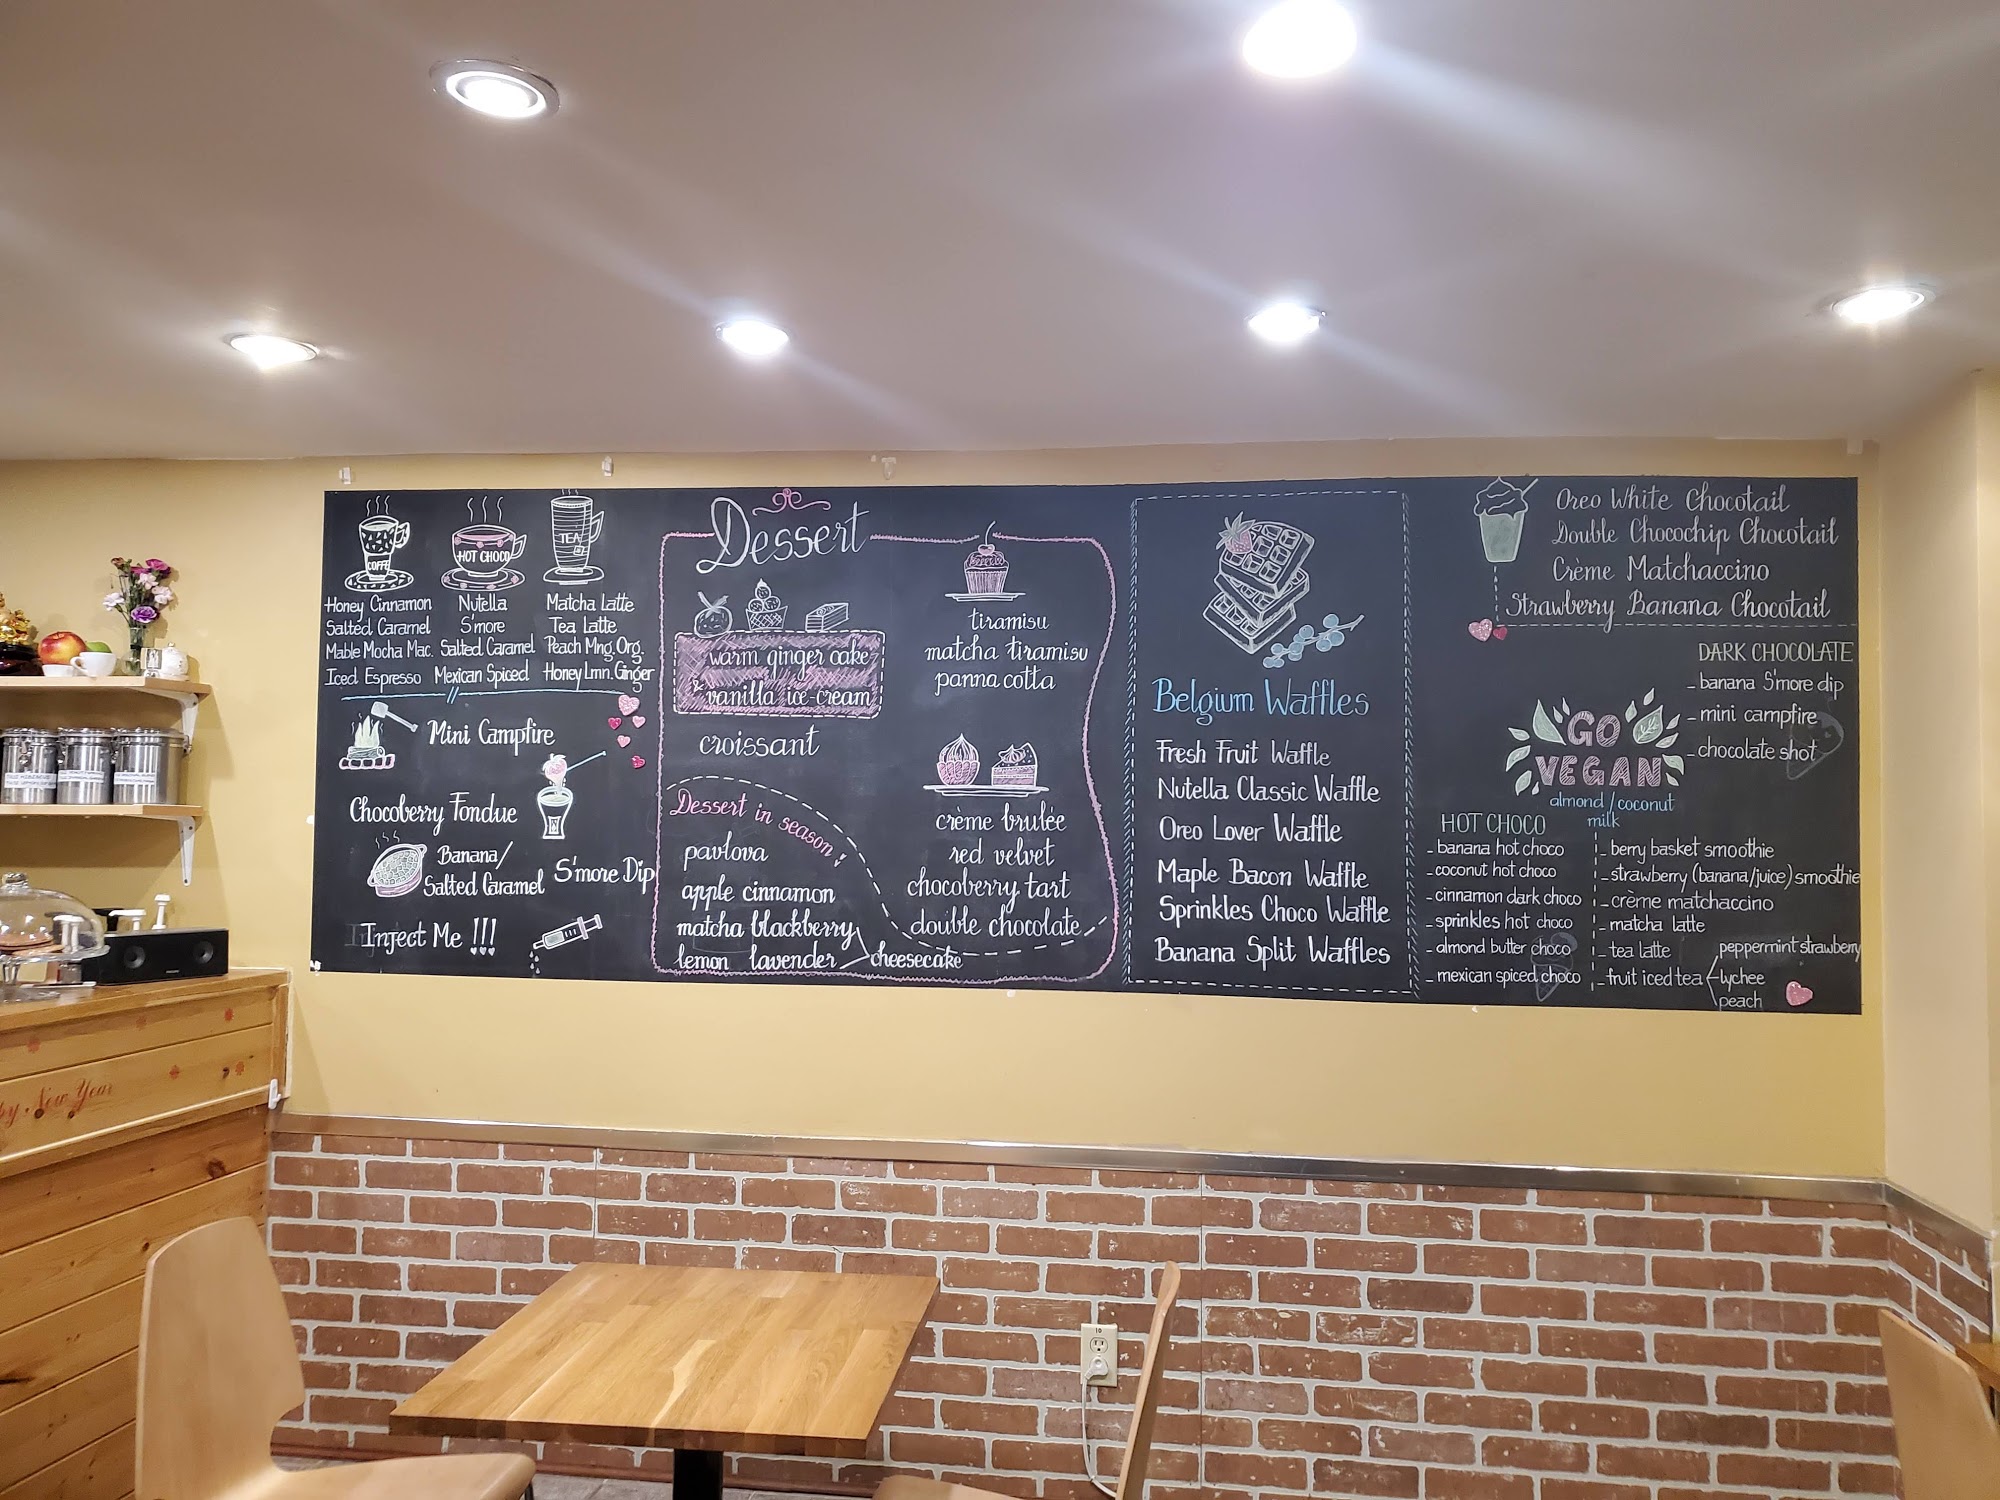 COFFE
HOT CHOCO
TEA
Honey Cinnamon
Salted Caramel
Mable Mocha Mac.
Iced Espresso
Nutella
S'more
Salted Caramel
Mexican Spiced
Matcha Latte
Tea Latte
Peach Mng. Org.
Honey Lmn. Ginger
Mini Campfire
Chocoberry Fondue
Banana/
Salted Caramel
S'more Dip
Inject Me !!!
Dessert
warm ginger cake
& vanilla ice-cream
croissant
Dessert in season!
pavlova
apple cinnamon
matcha blackberry
lemon lavender
cheesecake
tiramisu
matcha tiramisu
panna cotta
crème brulée
red velvet
chocoberry tart
double chocolate
Belgium Waffles
Fresh Fruit Waffle
Nutella Classic Waffle
Oreo Lover Waffle
Maple Bacon Waffle
Sprinkles Choco Waffle
Banana Split Waffles
Oreo White Chocotail
Double Chocochip Chocotail
Crème Matchaccino
Strawberry Banana Chocotail
DARK CHOCOLATE
- banana S'more dip
- mini campfire
- chocolate shot
GO
VEGAN
almond/coconut
milk
HOT CHOCO
- banana hot choco
- coconut hot choco
- cinnamon dark choco
- sprinkles hot choco
- almond butter choco
- mexican spiced choco
- berry basket smoothie
- strawberry (banana/juice) smoothie
- crème matchaccino
- matcha latte
- tea latte
- fruit iced tea
peppermint strawberry
lychee
peach
New Year
10